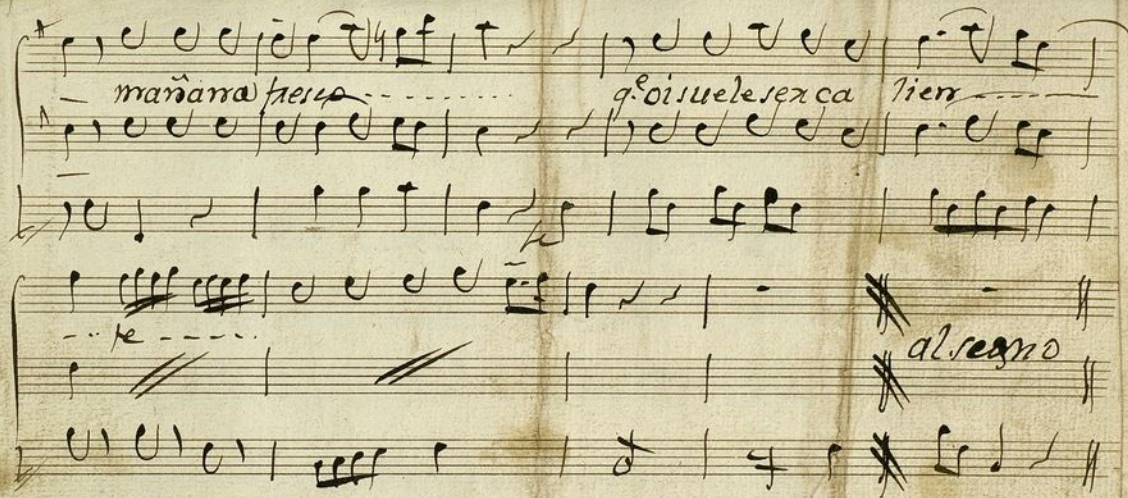 mañana fresco q.e oi suele ser ca lien
te
al segno